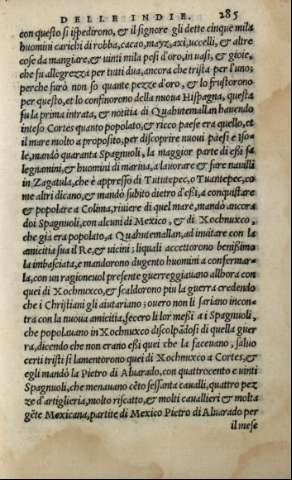 DELLE INDIE. 285
con questo si ispedirono, & il signore gli dette cinque mila
huomini carichi di robba, cacao, mayz, axi, uccelli, & altre
cose da mangiare, & uinti mila pesi d'oro, in uasi, & gioie,
che fu allegrezza per tutti dua, ancora che trista per l'uno;
perche furò non so quante pezze d'oro, & lo frustorono
per questo, et lo confinorono della nuoua Hispagna, questa
fu la prima intrata, & notitia di Quahutemallan hauendo
inteso Cortes quanto popolato, & ricco paese era quello, et
il mare molto a proposito, per discoprire nuoui paesi e Iso=
le, mandò quaranta Spagnuoli, la maggior parte di essi fa
legnamini, & huomini di marina, a lauorare & fare nauilli
in Zagatula, che è appresso di Tatutepec, o Tuantepec, co
me altri dicano, & mandò subito dietro d'essi, a conquistare
& popolare a Colima, riuiere di quel mare, mandò ancora
doi Spagnuoli, con alcuni di Mexico, & di Xochnuxco,
che già era popolato, a Quahutemallan, ad inuitare con la
amicitia sua il Re, & uicini; liquali accettorono benissimo
la imbasciata, e mandorono dugento huomini a confermar=
la, con un ragioneuol presente guerreggiauano allhora con
quei di Xochnuxco, & scaldorono piu la guerra credendo
che i Christiani gli aiutariano; ouero non li sariano incon=
tra con la nuoua amicitia, fecero li lor messi a i Spagnuoli,
che popolauano in Xochnuxco discolpãdosi di quella guer
ra, dicendo che non erano essi quei che la faceuano, saluo
certi tristi si lamentorono quei di Xochnuxco a Cortes, &
egli mandò la Pietro di Aluarado, con quattrocento e uinti
Spagnuoli, che menauano cẽto sessanta caualli, quatro pez
ze d'artiglieria, molto riscatto, & molti cauallieri & molta
gẽte Mexicana, partite di Mexico Pietro di Aluarado per
il mese